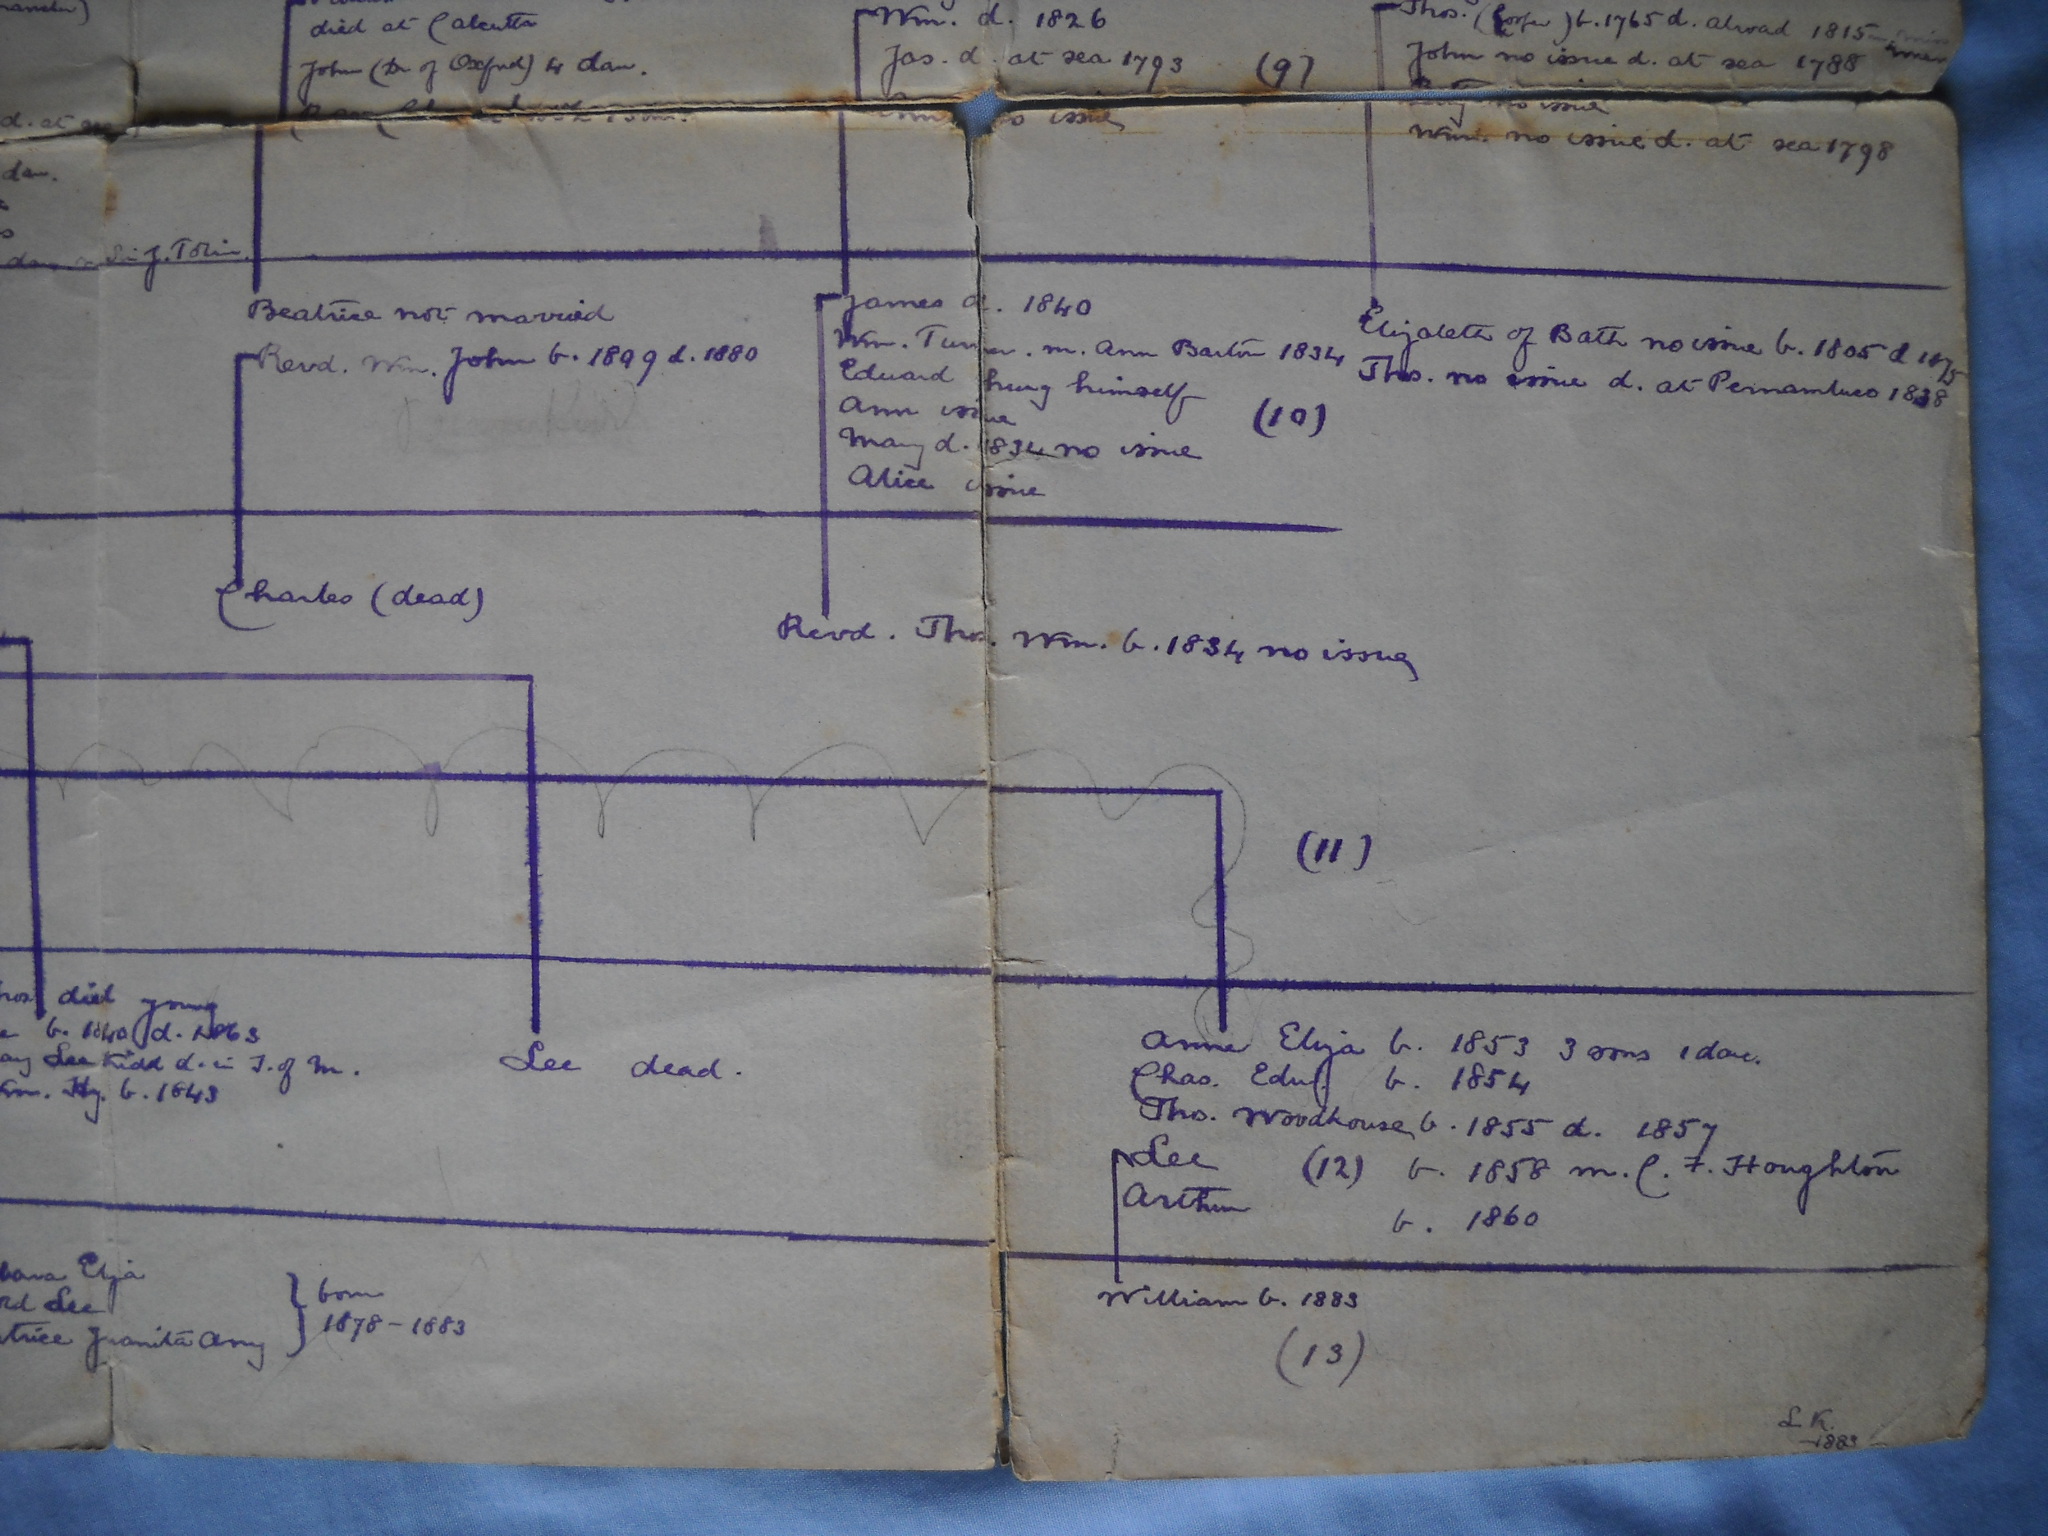 died at Calcutta
John (Dr of Oxford) 4 dau.
Wm. d. 1826
Jas. d. at sea 1793
(9)
Thos. b. 1765 d. abroad 1815
John no issue d. at sea 1788
no issue
Wm. no issue d. at sea 1798
no issue
d. at
dau.
J. Tobin.
Beatrice not married
Revd. Wm. John b. 1899 d. 1880
James d. 1840
Wm. Turner. m. Ann Barton 1834
Edward hung himself
Ann issue
Mary d. 1834 no issue
Alice issue
(10)
Elizabeth of Bath no issue b. 1805 d 1875
Thos. no issue d. at Pernambuco 1838
Charles (dead)
Revd. Thos. Wm. b. 1834 no issue
(11)
died young
b. 1840 d. 1863
Lee Kidd d. in I. of M.
Hy. b. 1843
Lee dead.
Anne Eliza b. 1853 3 sons 1 dau.
Chas. Edwd. b. 1854
Thos. Woodhouse b. 1855 d. 1857
Lee (12) b. 1858 m. C. F. Houghton
Arthur b. 1860
Eliza
Lee
Juanita Amy
born
1878-1883
William b. 1883
(13)
L K.
1883